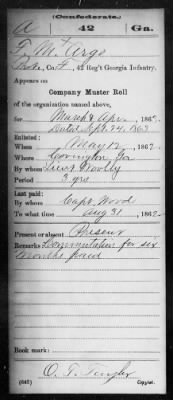 (Confederate.)
A 42 Ga.
T. M. Argo
Co. F, 42 Reg't Georgia Infantry.
Appears on
Company Muster Roll
of the organization named above,
for March & Apr. 186
Dated Sept. 24, 1863
Enlisted:
When May 12, 1862.
Where Covington, Ga
By whom Lieut
Period 3 yrs
Last paid:
By whom Capt. Wood
To what time Aug 31, 186
Present or absent Present
Remarks: Commutation for six
months paid
Book mark:
(642) Copyist.